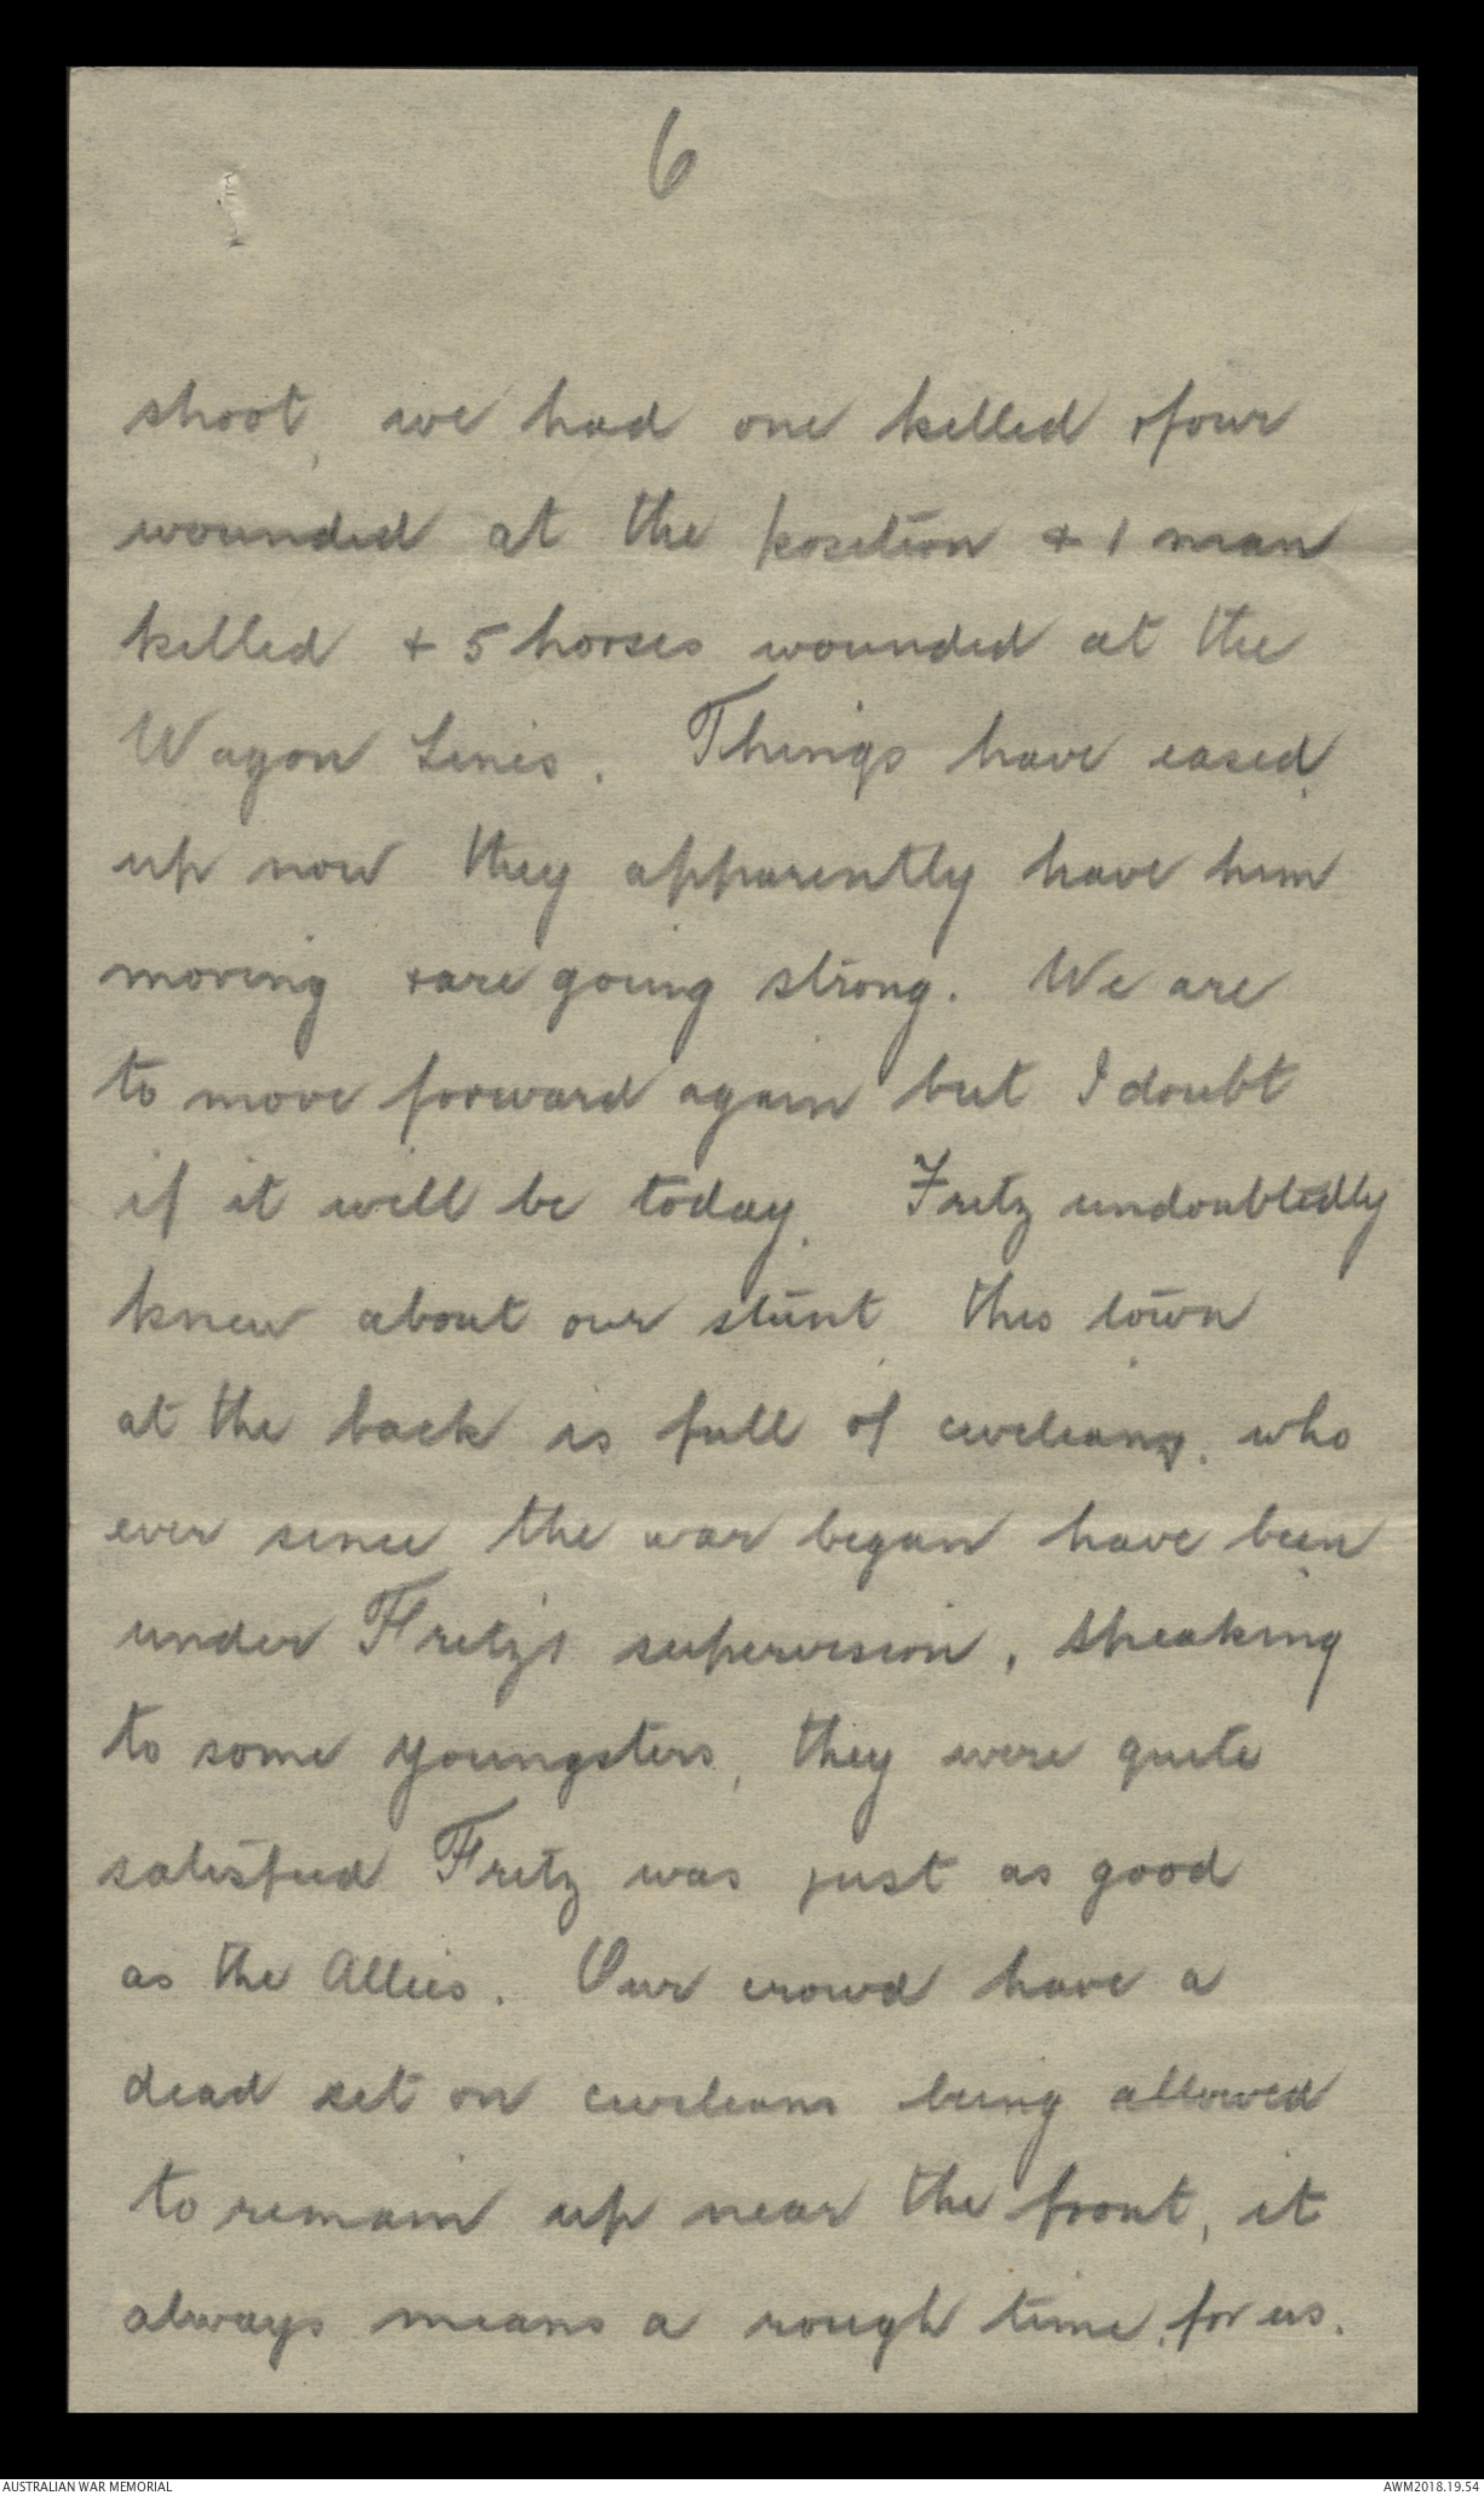 6
shoot, we had one killed & four
wounded at the position & 1 man
killed & 5 horses wounded at the
Wagon Lines. Things have eased
up now they apparently have him
moving & are going strong. We are
to move forward again but I doubt
if it will be today. Fritz undoubtedly
knew about our stunt, this town
at the back is full of civilians, who
ever since the war began have been
under Fritz's supervision, speaking
to some youngsters, they were quite
satisfied Fritz was just as good
as the Allies. Our crowd have a
dead set on civilians being allowed
to remain up near the front, it
always means a rough time, for us.
AUSTRALIAN WAR MEMORIAL
AWM2018.19.54